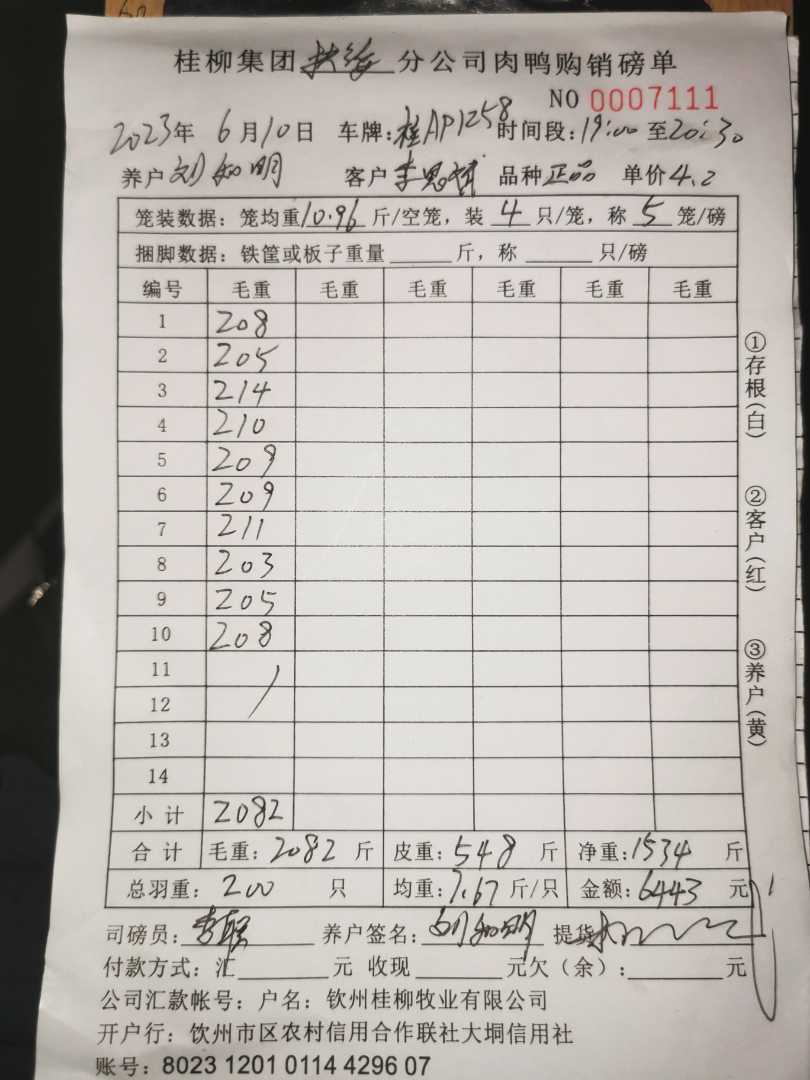 桂柳集团扶绥分公司肉鸭购销磅单
NO 0007111
2023年 6月10日 车牌:桂AP1258 时间段:19:00至20:30
养户 刘知明 客户 李 品种 正品 单价 4.2
笼装数据：笼均重10.96斤/空笼，装 4 只/笼，称 5 笼/磅
捆脚数据：铁筐或板子重量______斤，称______只/磅
编号 毛重 毛重 毛重 毛重 毛重 毛重
1 208
2 205
3 214
4 210
5 209
6 209
7 211
8 203
9 205
10 208
11
12
13
14
小计 2082
合计 毛重：2082 斤 皮重：548 斤 净重：1534 斤
总羽重：200 只 均重：7.67斤/只 金额：6443 元
司磅员： 养户签名：刘知明 提货
付款方式：汇______元 收现______元欠（余）：______元
公司汇款帐号：户名：钦州桂柳牧业有限公司
开户行：饮州市区农村信用合作联社大垌信用社
账号：8023 1201 0114 4296 07
①存根(白) ②客户(红) ③养户(黄)